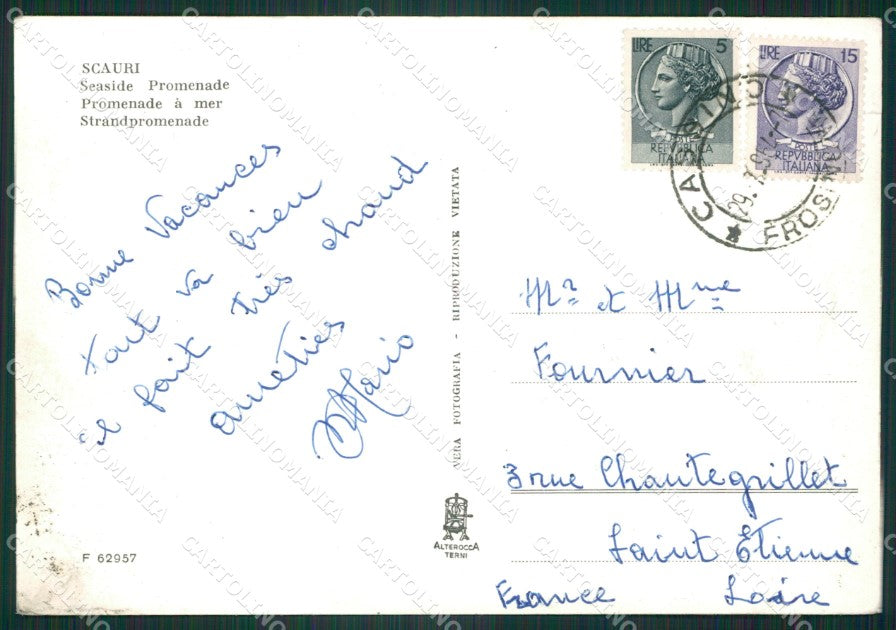 SCAURI
Seaside Promenade
Promenade à mer
Strandpromenade
Bonne Vacances
tout va bien
il fait très chaud
améties
Mario
F 62957
VERA FOTOGRAFIA - RIPRODUZIONE VIETATA
ALTEROCCA
TERNI
LIRE 5
REPVBBLICA
ITALIANA
LIRE 15
REPVBBLICA
ITALIANA
Mr et Mme
Fournier
3 rue Chantegrillet
Saint Étienne
France Loire
CARTOLINOMANIA